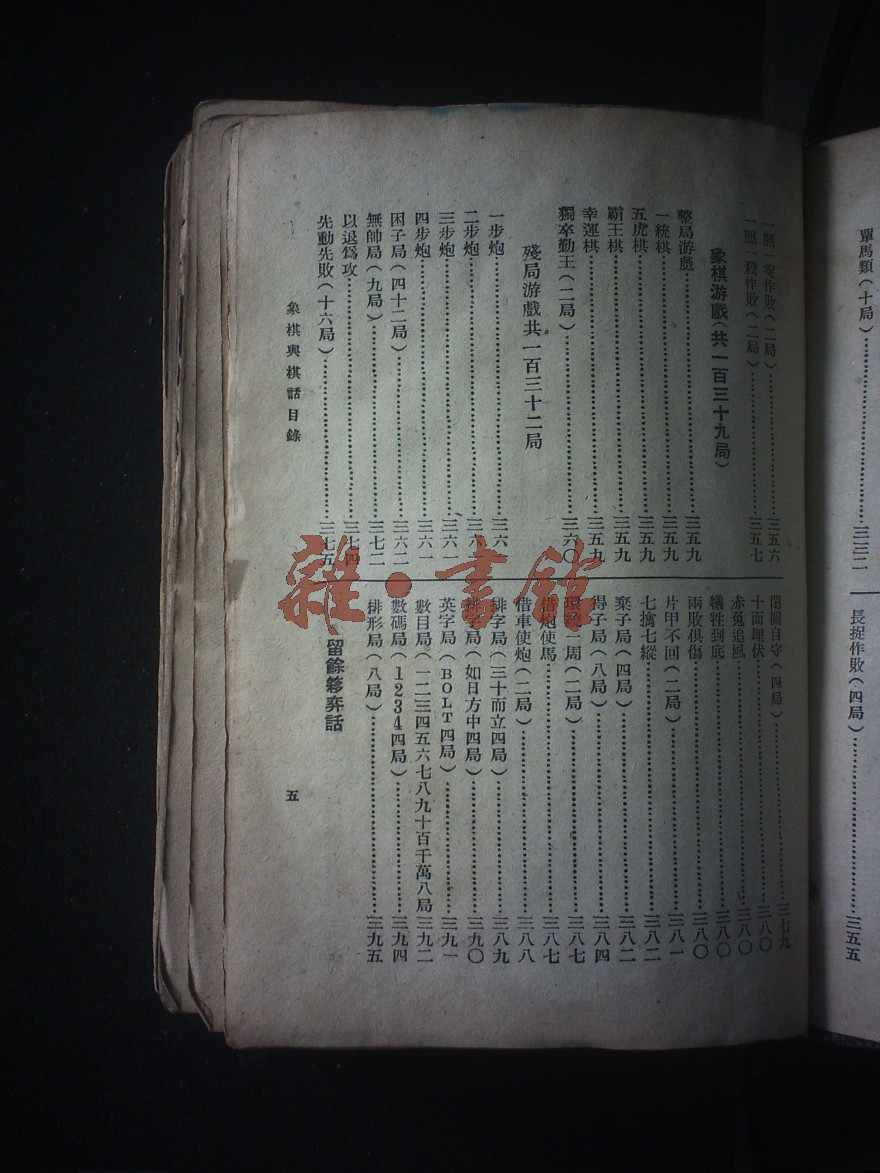 單馬類(十局)…………三三二
長捉作敗(四局)…………三五五
一照一捉作敗(二局)…………三五六
一照一殺作敗(二局)…………三五七
象棋游戲(共一百三十九局)
整局游戲…………三五九
一統棋…………三五九
五虎棋…………三五九
霸王棋…………三五九
幸運棋…………三五九
獨卒勤王(二局)…………三六〇
殘局游戲共一百三十二局
一步炮…………三六
二步炮…………三六
三步炮…………三六一
四步炮…………三六一
困子局(四十二局)…………三六二
無帥局(九局)…………三七二
以退爲攻…………三七四
先動先敗(十六局)…………三七五
閉關自守(四局)…………三七九
十面埋伏…………三八〇
赤兔追風…………三八〇
犧牲到底…………三八〇
兩敗俱傷…………三八〇
片甲不回(二局)…………三八一
七擒七縱…………三八二
棄子局(四局)…………三八二
得子局(八局)…………三八四
環繞一周(二局)…………三八七
借炮使馬…………三八七
借車使炮(二局)…………三八八
排字局(三十而立四局)…………三八九
排字局(如日方中四局)…………三九〇
英字局(BOLT四局)…………三九一
數目局(一二三四五六七八九十百千萬八局)三九二
數碼局(1234四局)…………三九四
排形局(八局)…………三九五
留餘簃弈話
象棋與棋話目錄
五
雜·書館